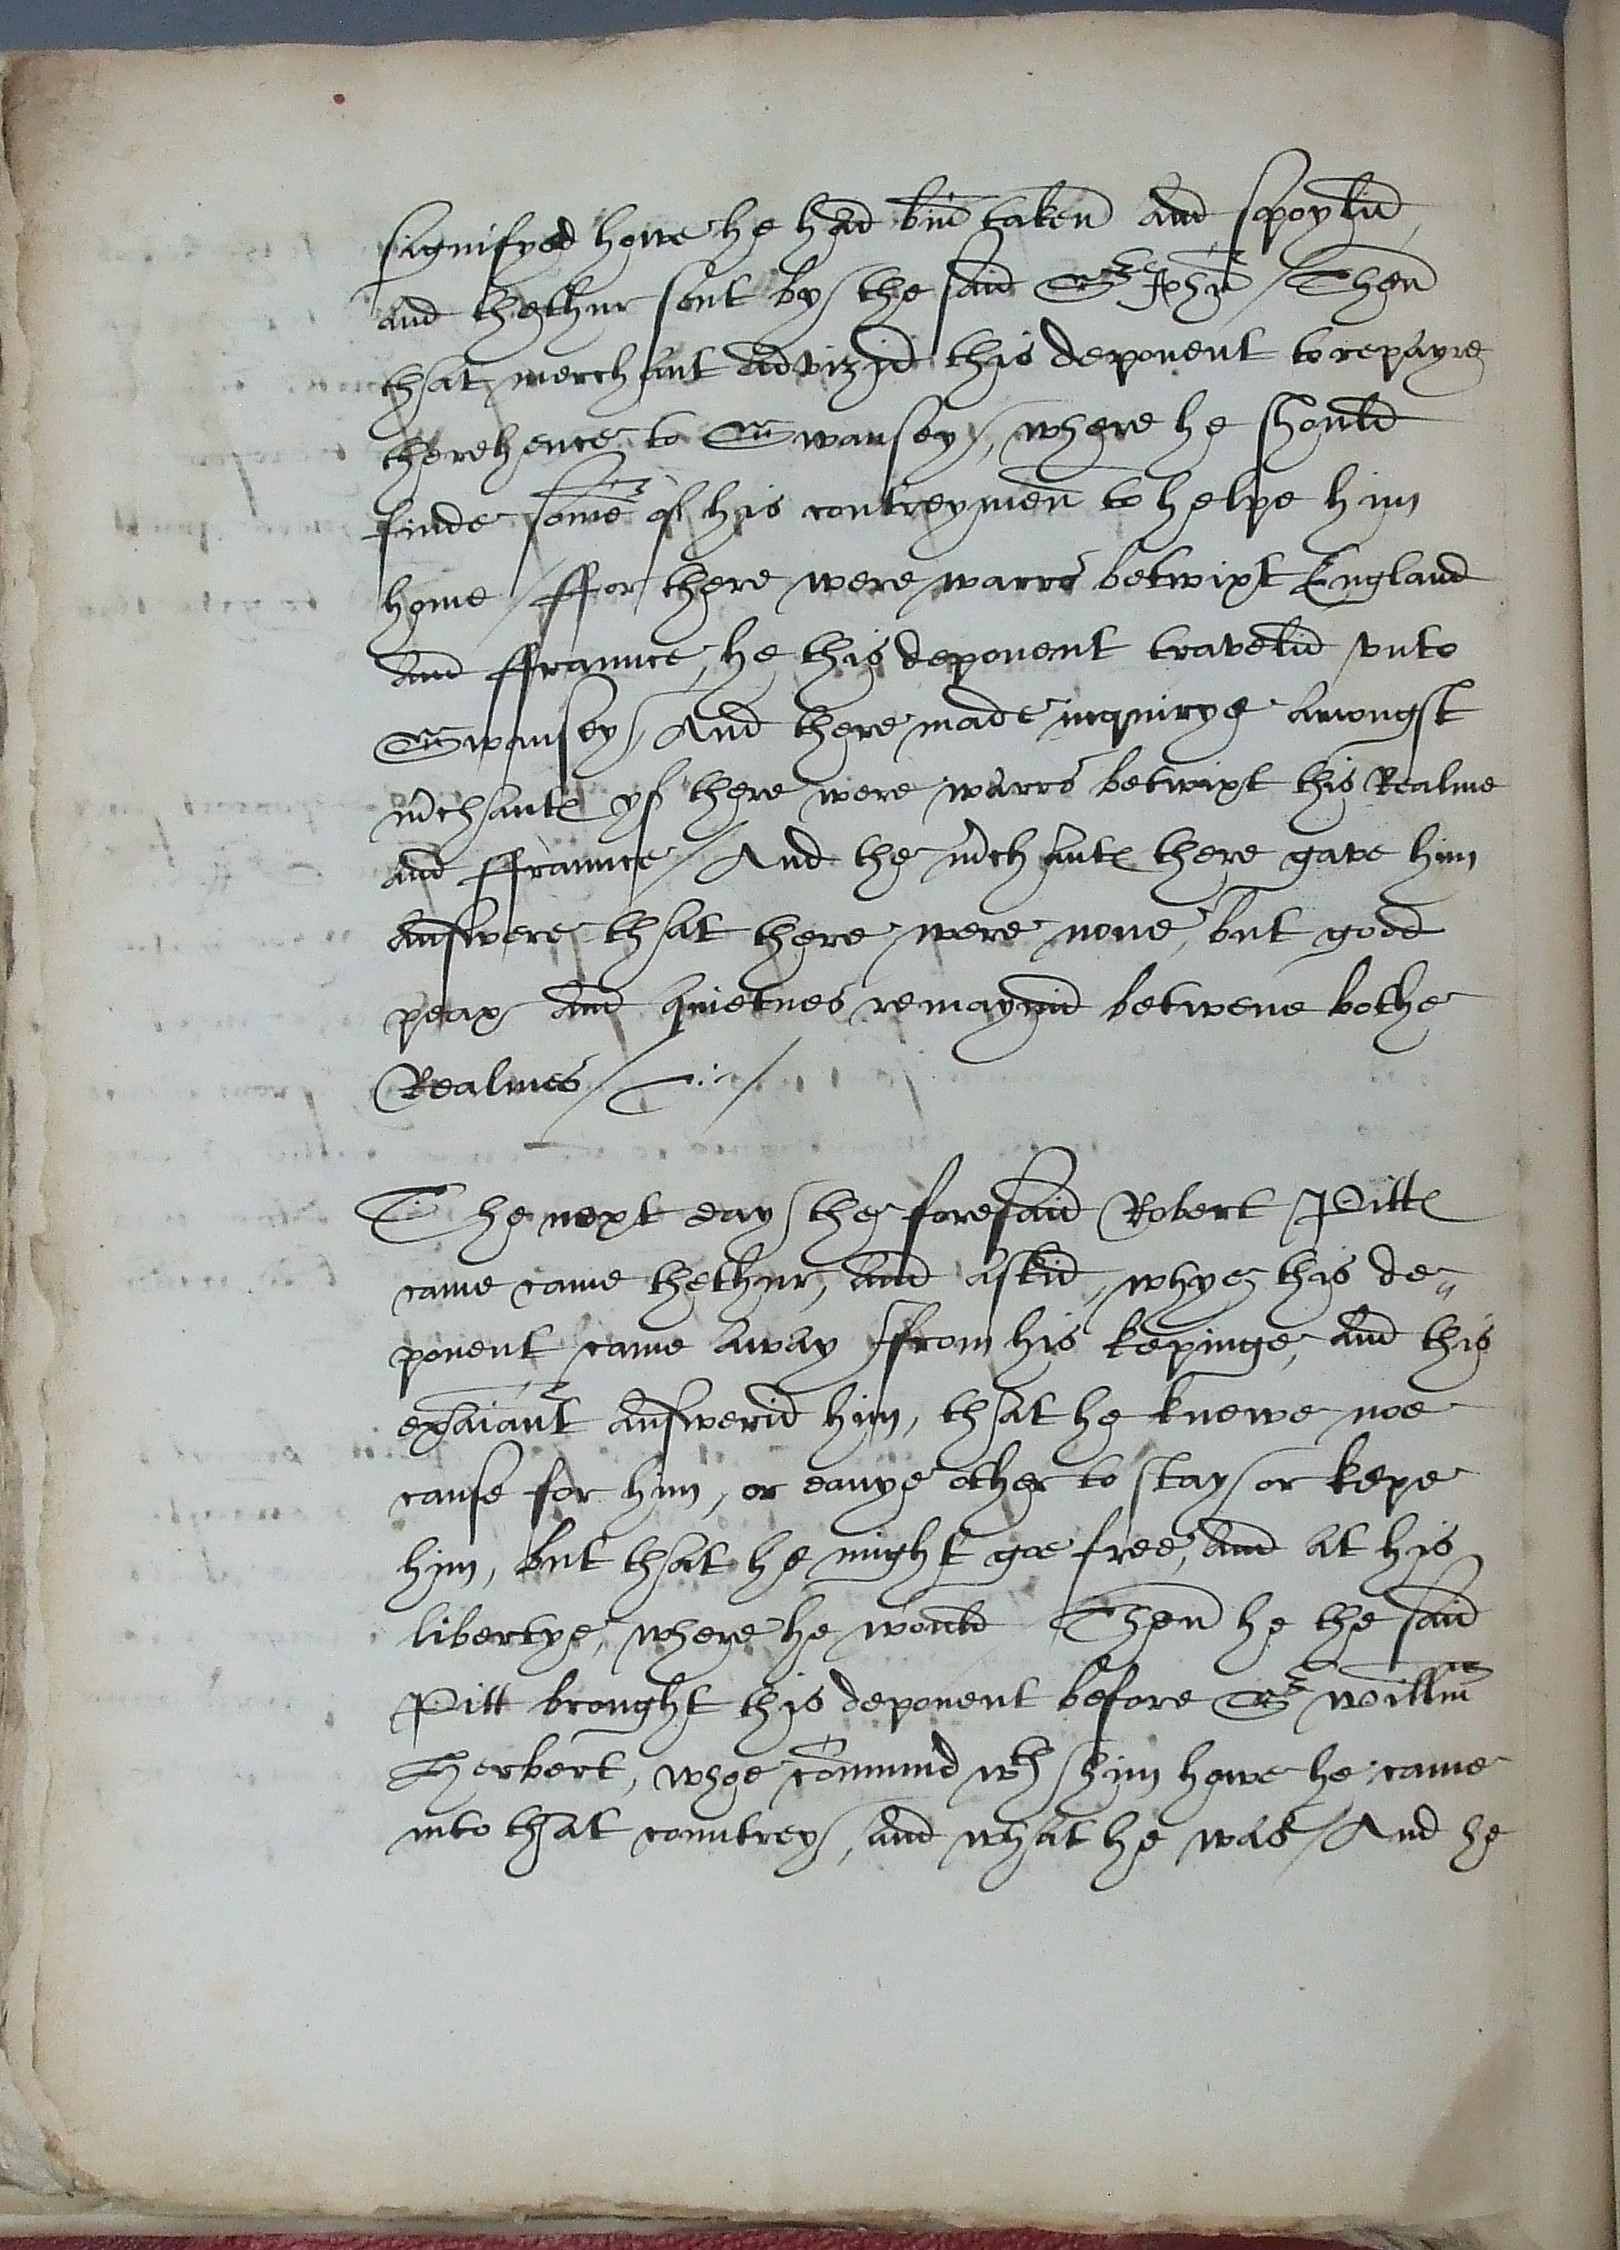 signifyed howe he had bin taken and spoylid,
and thethur sent by the said Sr John / Then
that merchant advizid this deponent to repayre
therehence to Swansey, where he should
finde some of his contreymen to helpe him
home / ffor there were warrs betwixt England
and ffraunce, he this deponent travelid vnto
Swansey / And there made inquirye amongst
mchantes yf there were warrs betwixt this Realme
and ffraunce / And the mchantes there gave him
answere that there were none, but good
peax and quietnes remaynid betwene bothe
Realmes /
The next day the foresaid Robert Pittes
came came thethur, and askid, whye this de„
ponent came away ffrom his kepinge, and this
exaiant answerid him, that he knewe noe
cause for him, or eanye other to stay or kepe
him, but that he might goe free, and at his
libertye, where he would Then he the said
Pitt brought this deponent before Sr Willm
Herbert, whoe comunid wth him howe he came
into that countrey, and what he was / And he